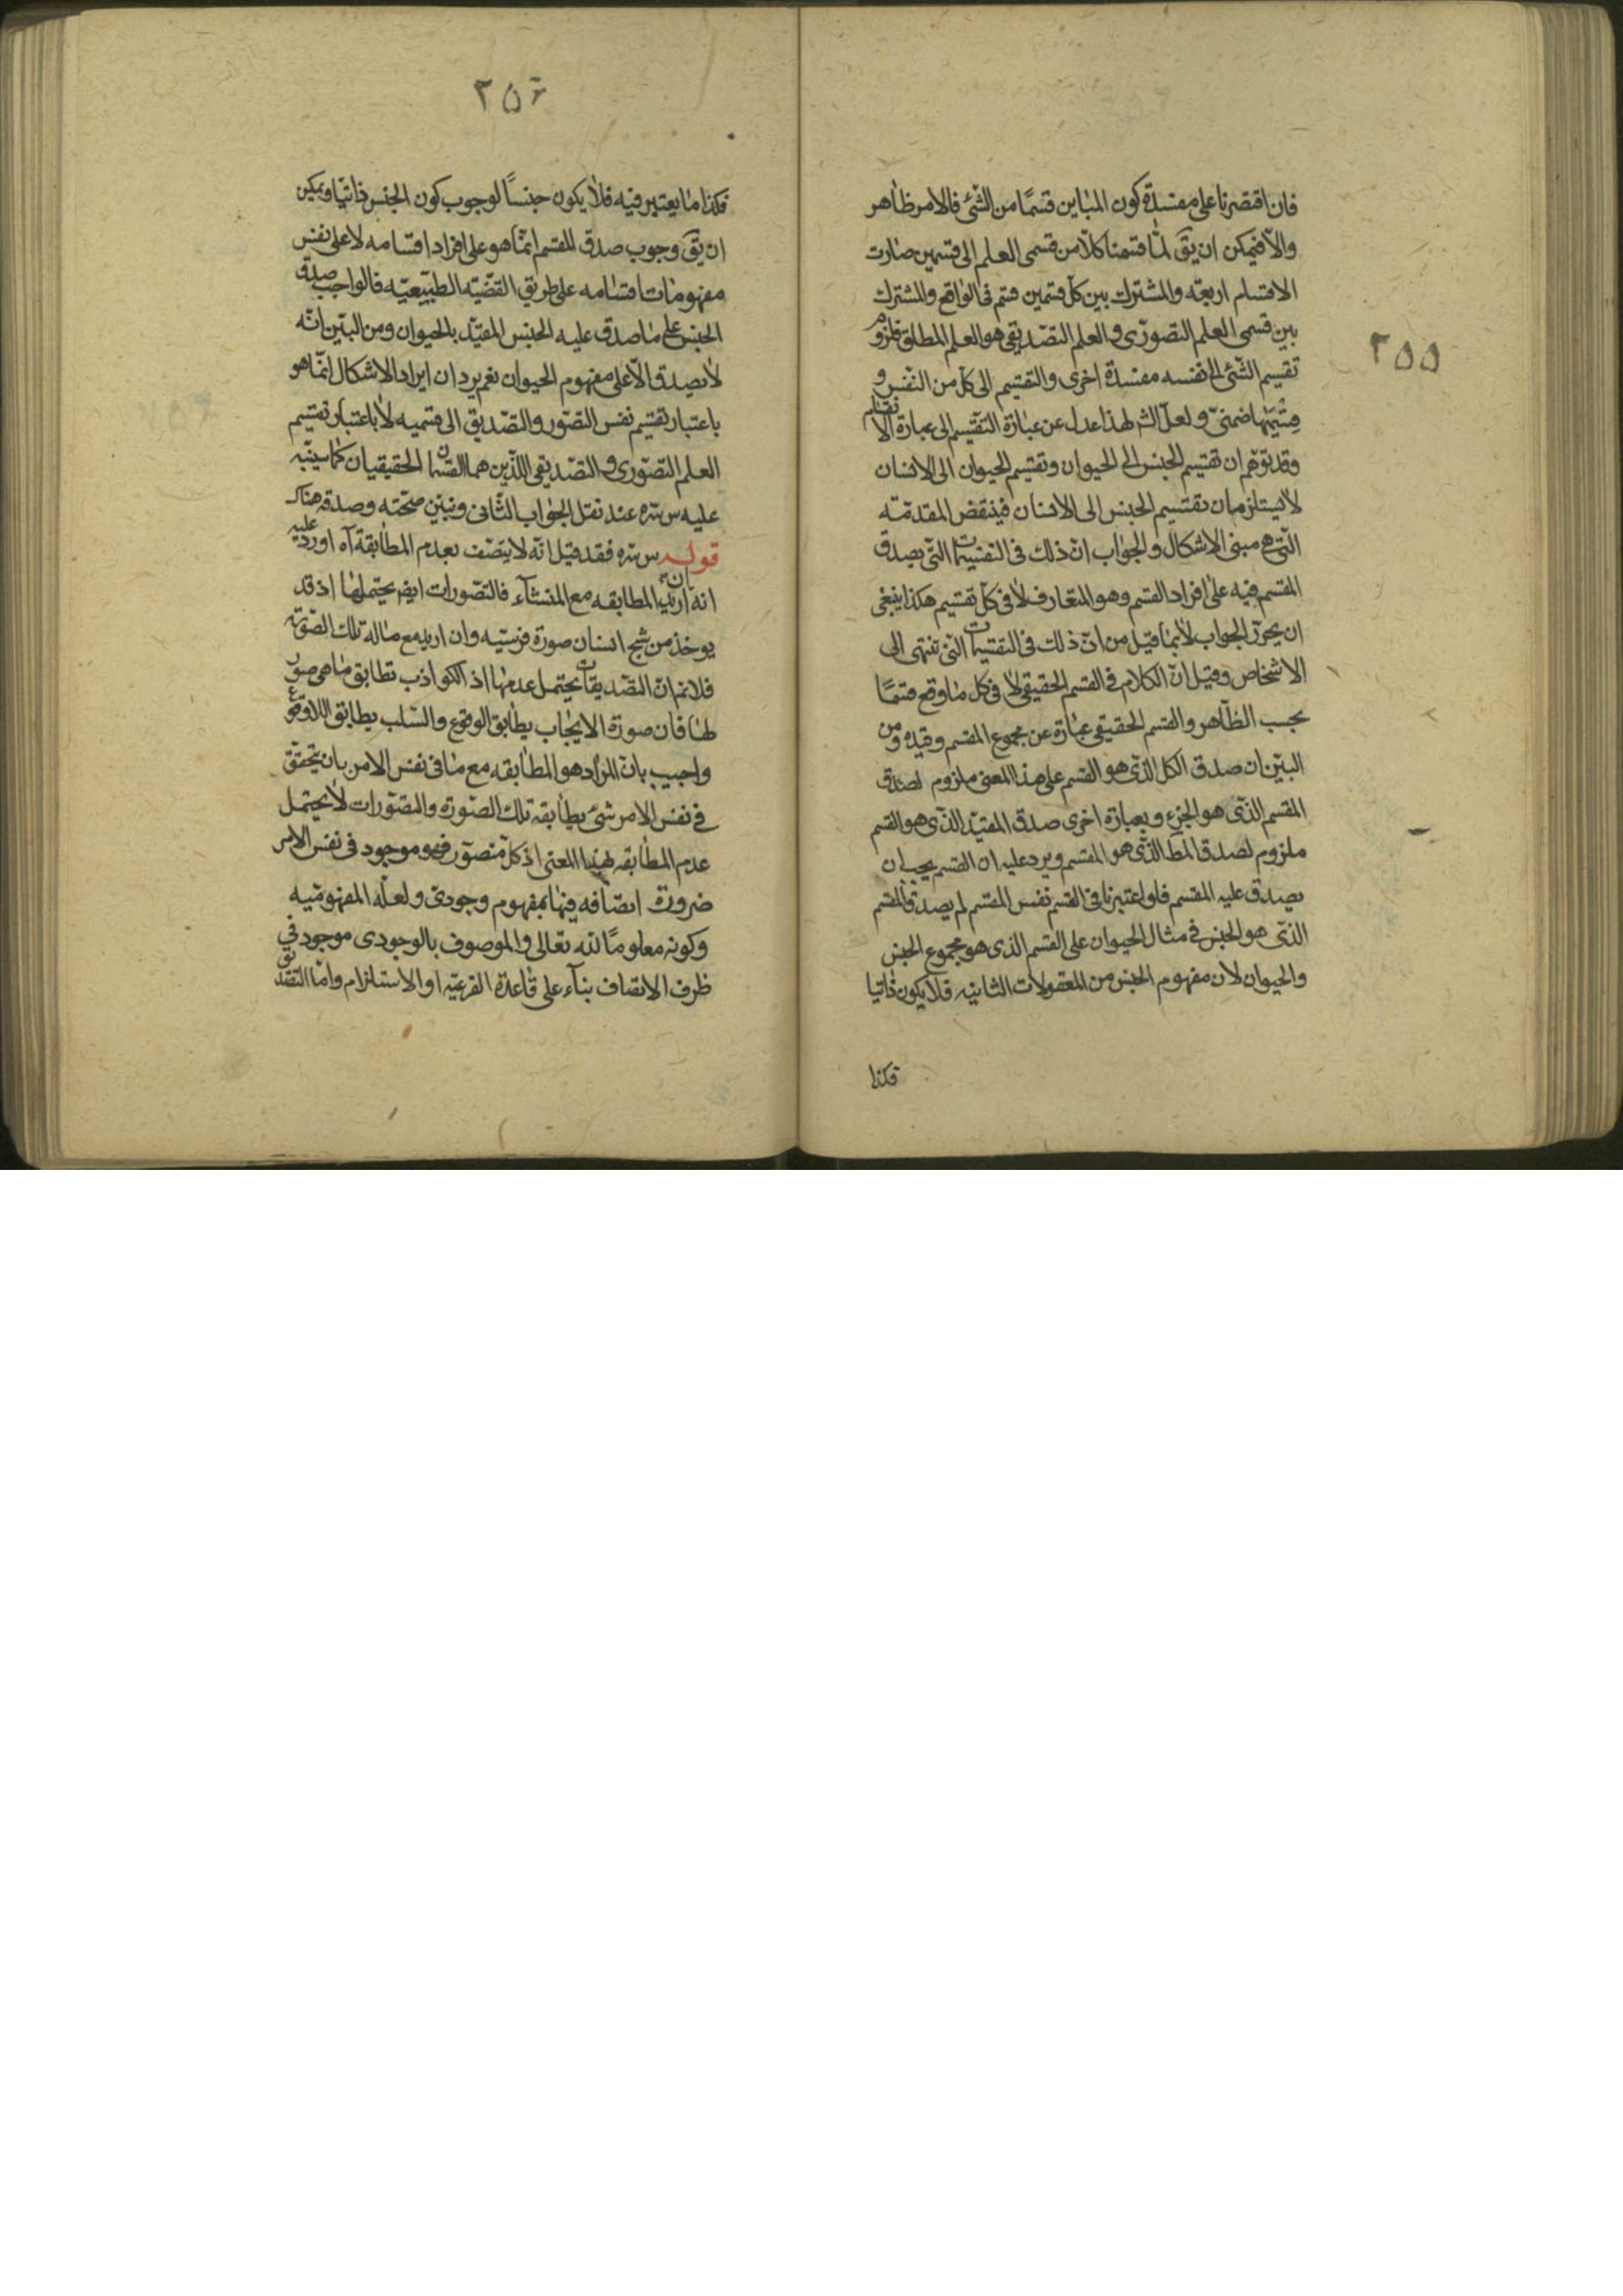 ٢٥٥
فان اقتصرنا على مفسدة كون المباين قسمًا من الشئ فالامر ظاهر
والّا فيمكن ان يقٓ لمّا قسمنا كلاّ من قسمى العلم الى قسمين صارت
الاقسام اربعة والمشترك بين كلّ قسمين قسم فى الواقع والمشترك
بين قسمى العلم التصوّرى والعلم التصديقى هو العلم المطلق فلزوم
تقسيم الشئ الى نفسه مفسدة اخرى والتقسيم الى كلّ من النفس و
ضمنىّ ولعلّ الشر لهذا عدل عن عبارة التقسيم الى عبارة الانقسام
وقد توهّم ان تقسيم الجنس الى الحيوان وتقسيم الحيوان الى الانسان
لا يستلزمان تقسيم الجنس الى الانسان فينتقض المقدمّة
التى هى مبنى الاشكال والجواب انّ ذلك فى التقسيمات التى يصدق
المقسم فيه على افراد القسم وهو المتعارف لا فى كلّ تقسيم هكذا ينبغى
ان يحرّر الجواب لا بما قيل من انّ ذلك فى التقسيمات التى تنتهى الى
الاشخاص وقيل انّ الكلام فى القسم الحقيقى لا فى كل ما وقع قسمًا
بحسب الظاهر والقسم الحقيقى عبارة عن مجموع المقسم وقيده ومن
البيّن ان صدق الكل الذى هو القسم على هذا المعنى ملزوم لصدق
المقسم الذى هو الجزء وبعبارة اخرى صدق المقيّد الذى هو القسم
ملزوم لصدق المط الذى هو المقسم ويرد عليه ان القسم يجب ان
يصدق عليه المقسم فلو اعتبرنا فى القسم نفس المقسم لم يصدق المقسم
الذى هو الجنس فى مثال الحيوان على القسم الذى هو مجموع الجنس
والحيوان لان مفهوم الجنس من المعقولات الثانيه فلا يكون ذاتيا
فكذا
٢٥٦
فكذا ما يعتبر فيه فلا يكون جنسًا لوجوب كون الجنس ذاتيا ويمكن
ان يقٓ وجوب صدق المقسم انّما هو على افراد اقسامه لا على نفس
مفهومات اقسامه على طريق القضيّه الطبيعيّه فالواجب صدق
الجنس على ما صدق عليه الجنس المقيّد بالحيوان ومن البيّن انّه
لا يصدق الّا على مفهوم الحيوان نعم يرد ان ايراد الاشكال انّما هو
باعتبار تقسيم نفس التصوّر والتصديق الى قسميه لا باعتبار تقسيم
العلم التصوّرى والتصديقى اللّذين هما القسمان الحقيقيان كما سينبّه
عليه س سره عند نقل الجواب الثانى ونبيّن صحّته وصدقه هناك
قوله س سره فقد قيل انّه لا يتصف بعدم المطابقة آه اورد عليه
انه ان اريد المطابقه مع المنشاء فالتصورات ايضا يحتملها اذ قد
يوخذ من شبح انسان صورة فرسيّه وان اريد مع ما له تلك الصورة
فلا نم انّ التصديقات يحتمل عدمها اذ الكواذب تطابق ما هى صور
لها فان صورة الايجاب يطابق الوقوع والسّلب يطابق اللاوقوع
واجيب بانّ المراد هو المطابقه مع ما فى نفس الامر بان يتحقق
فى نفس الامر شئ يطابقه تلك الصّورة والتصوّرات لا يحتمل
عدم المطابقه لهذا المعنى اذ كلّ متصوّر فهو موجود فى نفس الامر
ضرورة اتصافه فيها بمفهوم وجودى ولعلّه المفهوميّه
وكونه معلومًا لله تعالى والموصوف بالوجودى موجود فى
ظرف الاتصاف بناء على قاعدة الفرعيّه او الاستلزام وامّا التصديق